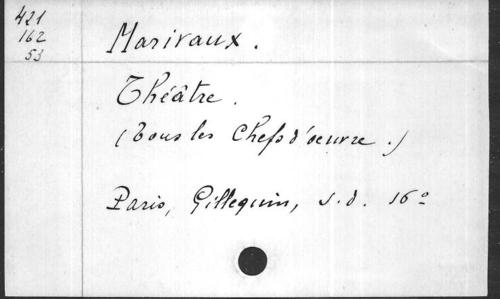 421
162
53
Marivaux.
Théâtre.
(Tous les Chefs d'oeuvre.)
Paris, Gillequin, s.d. 16º